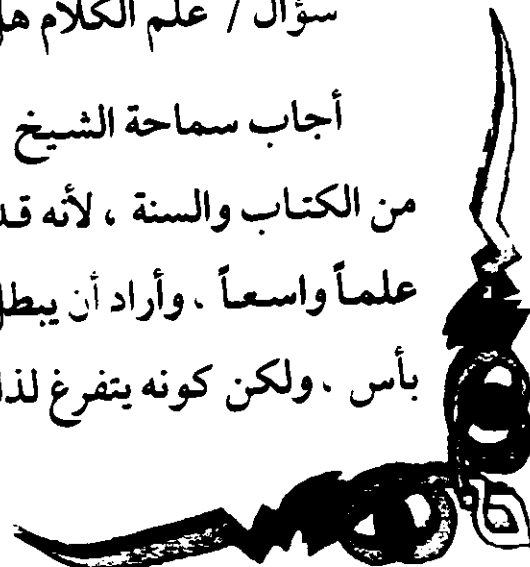 سؤال / علم الكلام هل
أجاب سماحة الشيخ
من الكتاب والسنة ، لأنه قد
علماً واسعاً ، وأراد أن يبطل
بأس ، ولكن كونه يتفرغ لذ